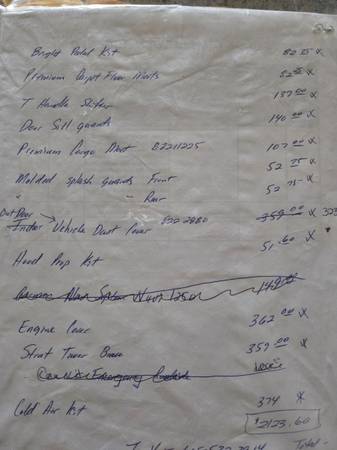 Bright Pedal Kit 82.75 X
Premium Carpet Floor Mats 82.75 X
T Handle Shifter 137.00 X
Door Sill guards 140.00 X
Premium Cargo Mat 82211225 107.00 X
Molded Splash guards Front 52.75 X
" - Rear 52.75 X
OutDoor
Indoor Vehicle Dust Cover 359.00 X 325
Hood Prop Kit 51.60 X
149.00
Engine Cover 362.00 X
Strut Tower Brace 359.00 X
Cold Air Kit 374 X
$2123.60
Total-